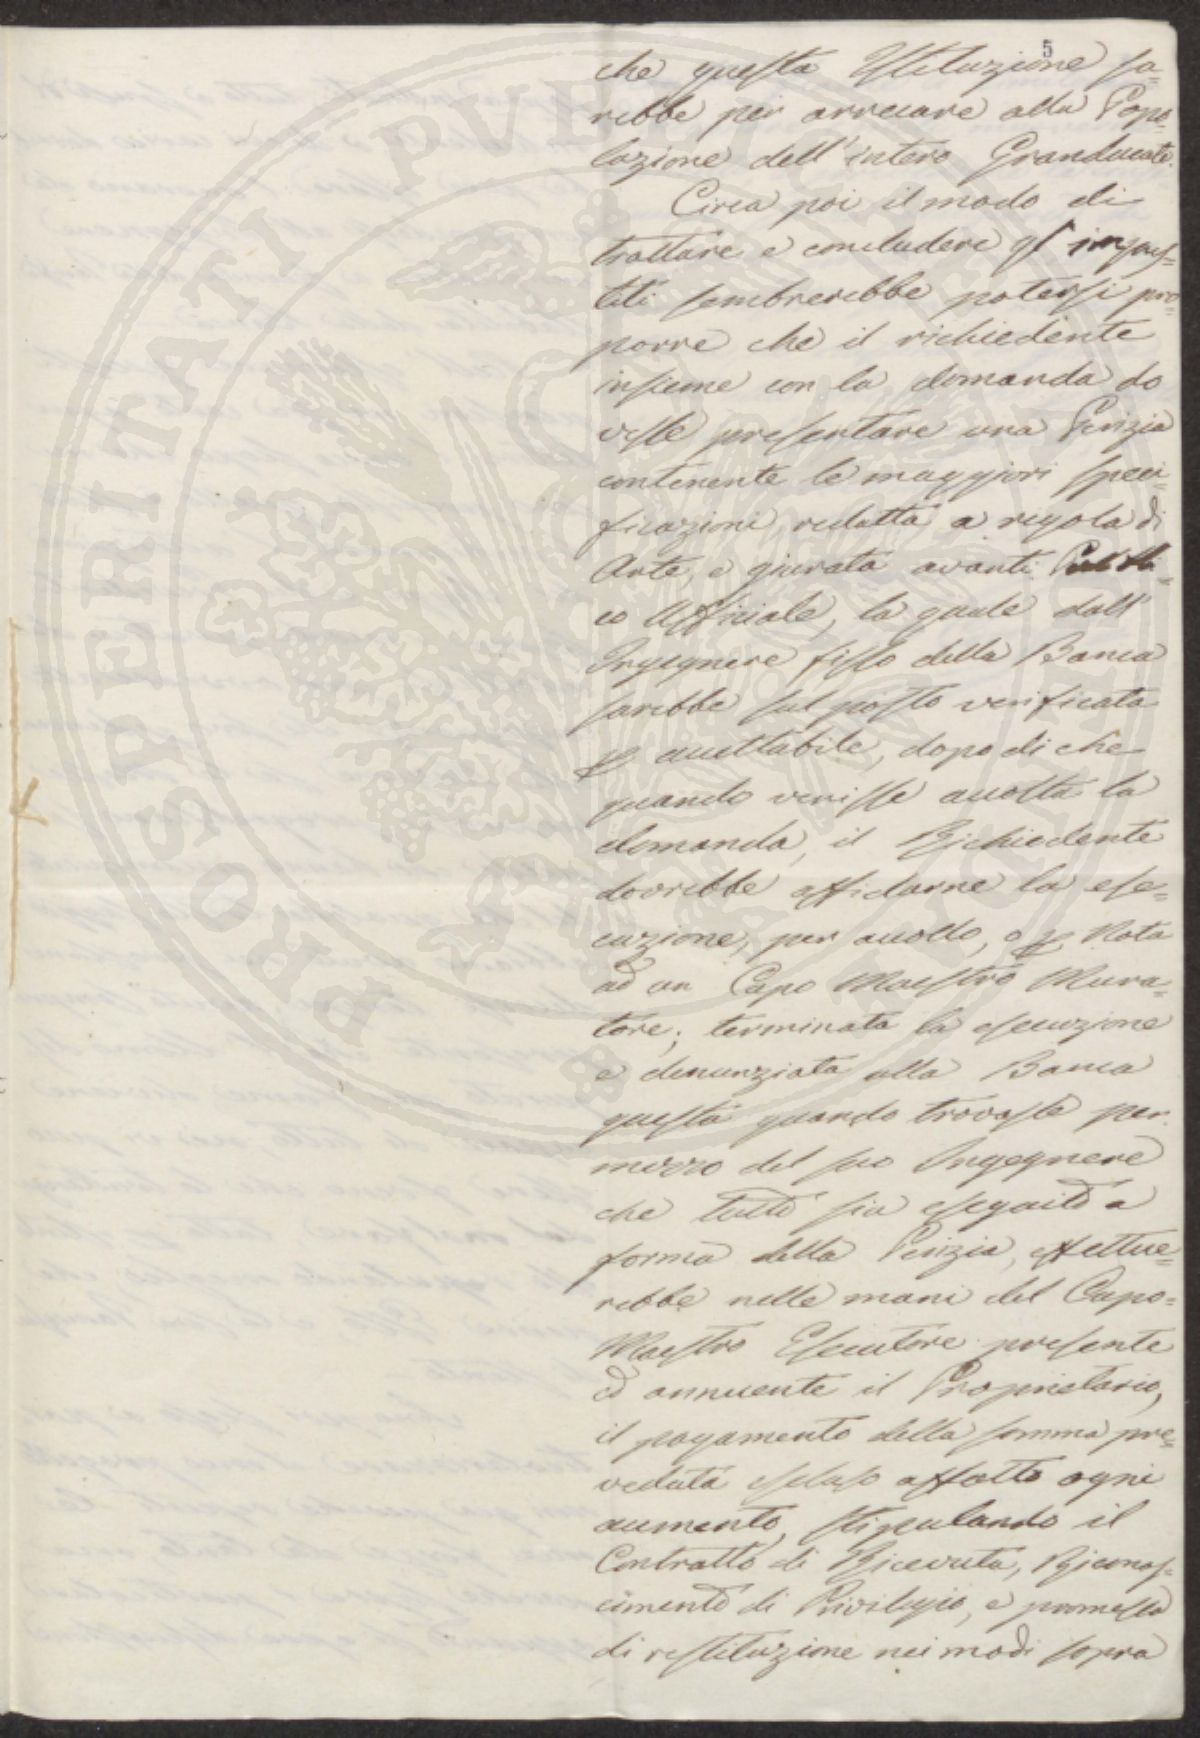 5
che questa Istituzione sa=
rebbe per arrecare alla Popo=
lazione dell'intero Granducato.
Circa poi il modo di
trattare e concludere gl'impres=
titi sembrerebbe potersi pro=
porre che il richiedente
insieme con la domanda do
vesse presentare una Perizia
contenente le maggiori speci=
ficazioni, redatta a regola di
Arte, e giurata avanti Pubbli=
co Ufficiale, la quale dall'
Ingegnere fisso della Banca
sarebbe sul posto verificata
se accettabile, dopo di che
quando venisse accolta la
domanda, il Richiedente
dovrebbe affidarne la ese=
cuzione, per accollo, o p Nota
ad un Capo Maestro Mura=
tore; terminata la esecuzione
e denunziata alla Banca
questa quando trovasse per
mezzo del suo Ingegnere
che tutto sia eseguito a
forma della Perizia, effettue=
rebbe nelle mani del Capo=
Maestro Esecutore presente
ed annuente il Proprietario,
il pagamento della somma pre=
veduta escluso affatto ogni
aumento, stipulando il
Contratto di Ricevuta, Riconos=
cimento di Privilegio, e promessa
di restituzione nei modi sopra
PROSPERITATI PVBLICAE